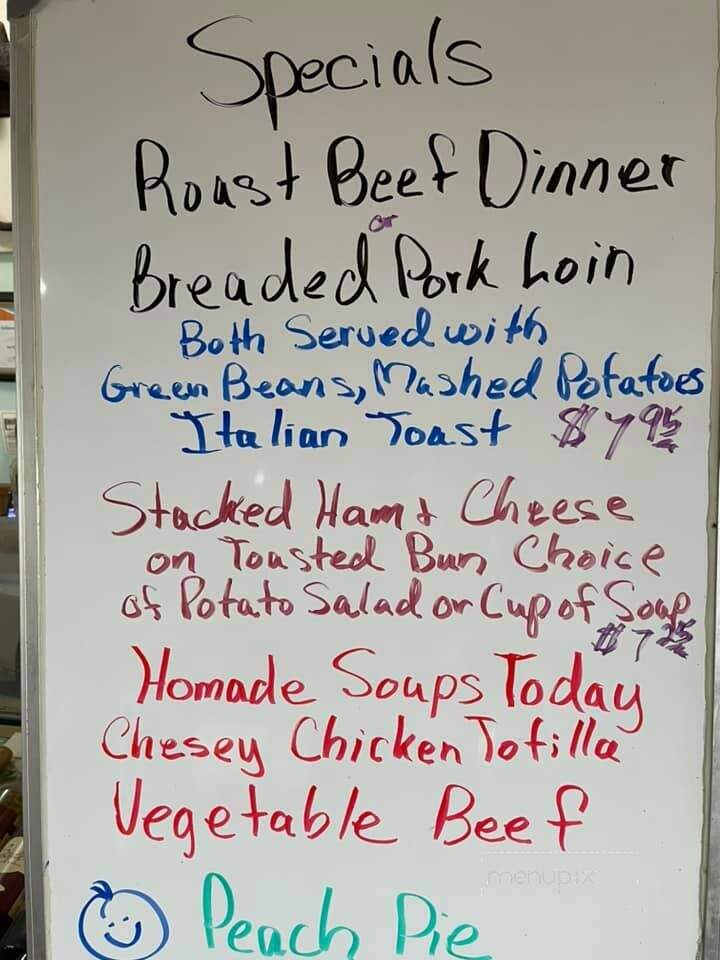 Specials
Roast Beef Dinner
or
Breaded Pork Loin
Both Served with
Green Beans, Mashed Potatoes
Italian Toast $7 95
Stacked Ham & Cheese
on Toasted Bun Choice
of Potato Salad or Cup of Soup
$7 25
Homade Soups Today
Chesey Chicken Totilla
Vegetable Beef
menupix
Peach Pie